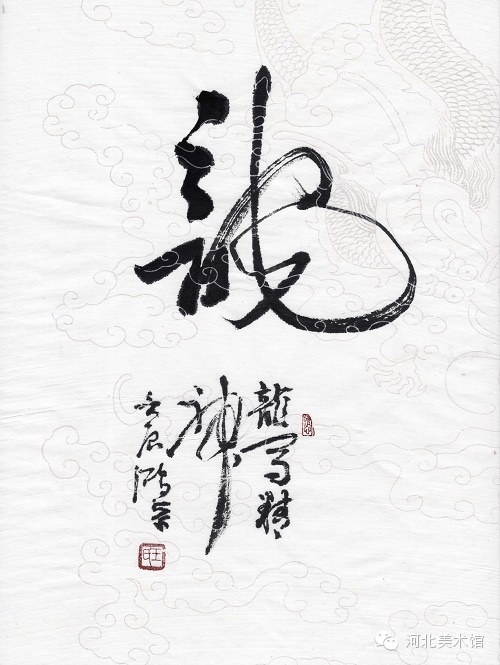 龍
龍馬精
神
壬辰
河北美术馆